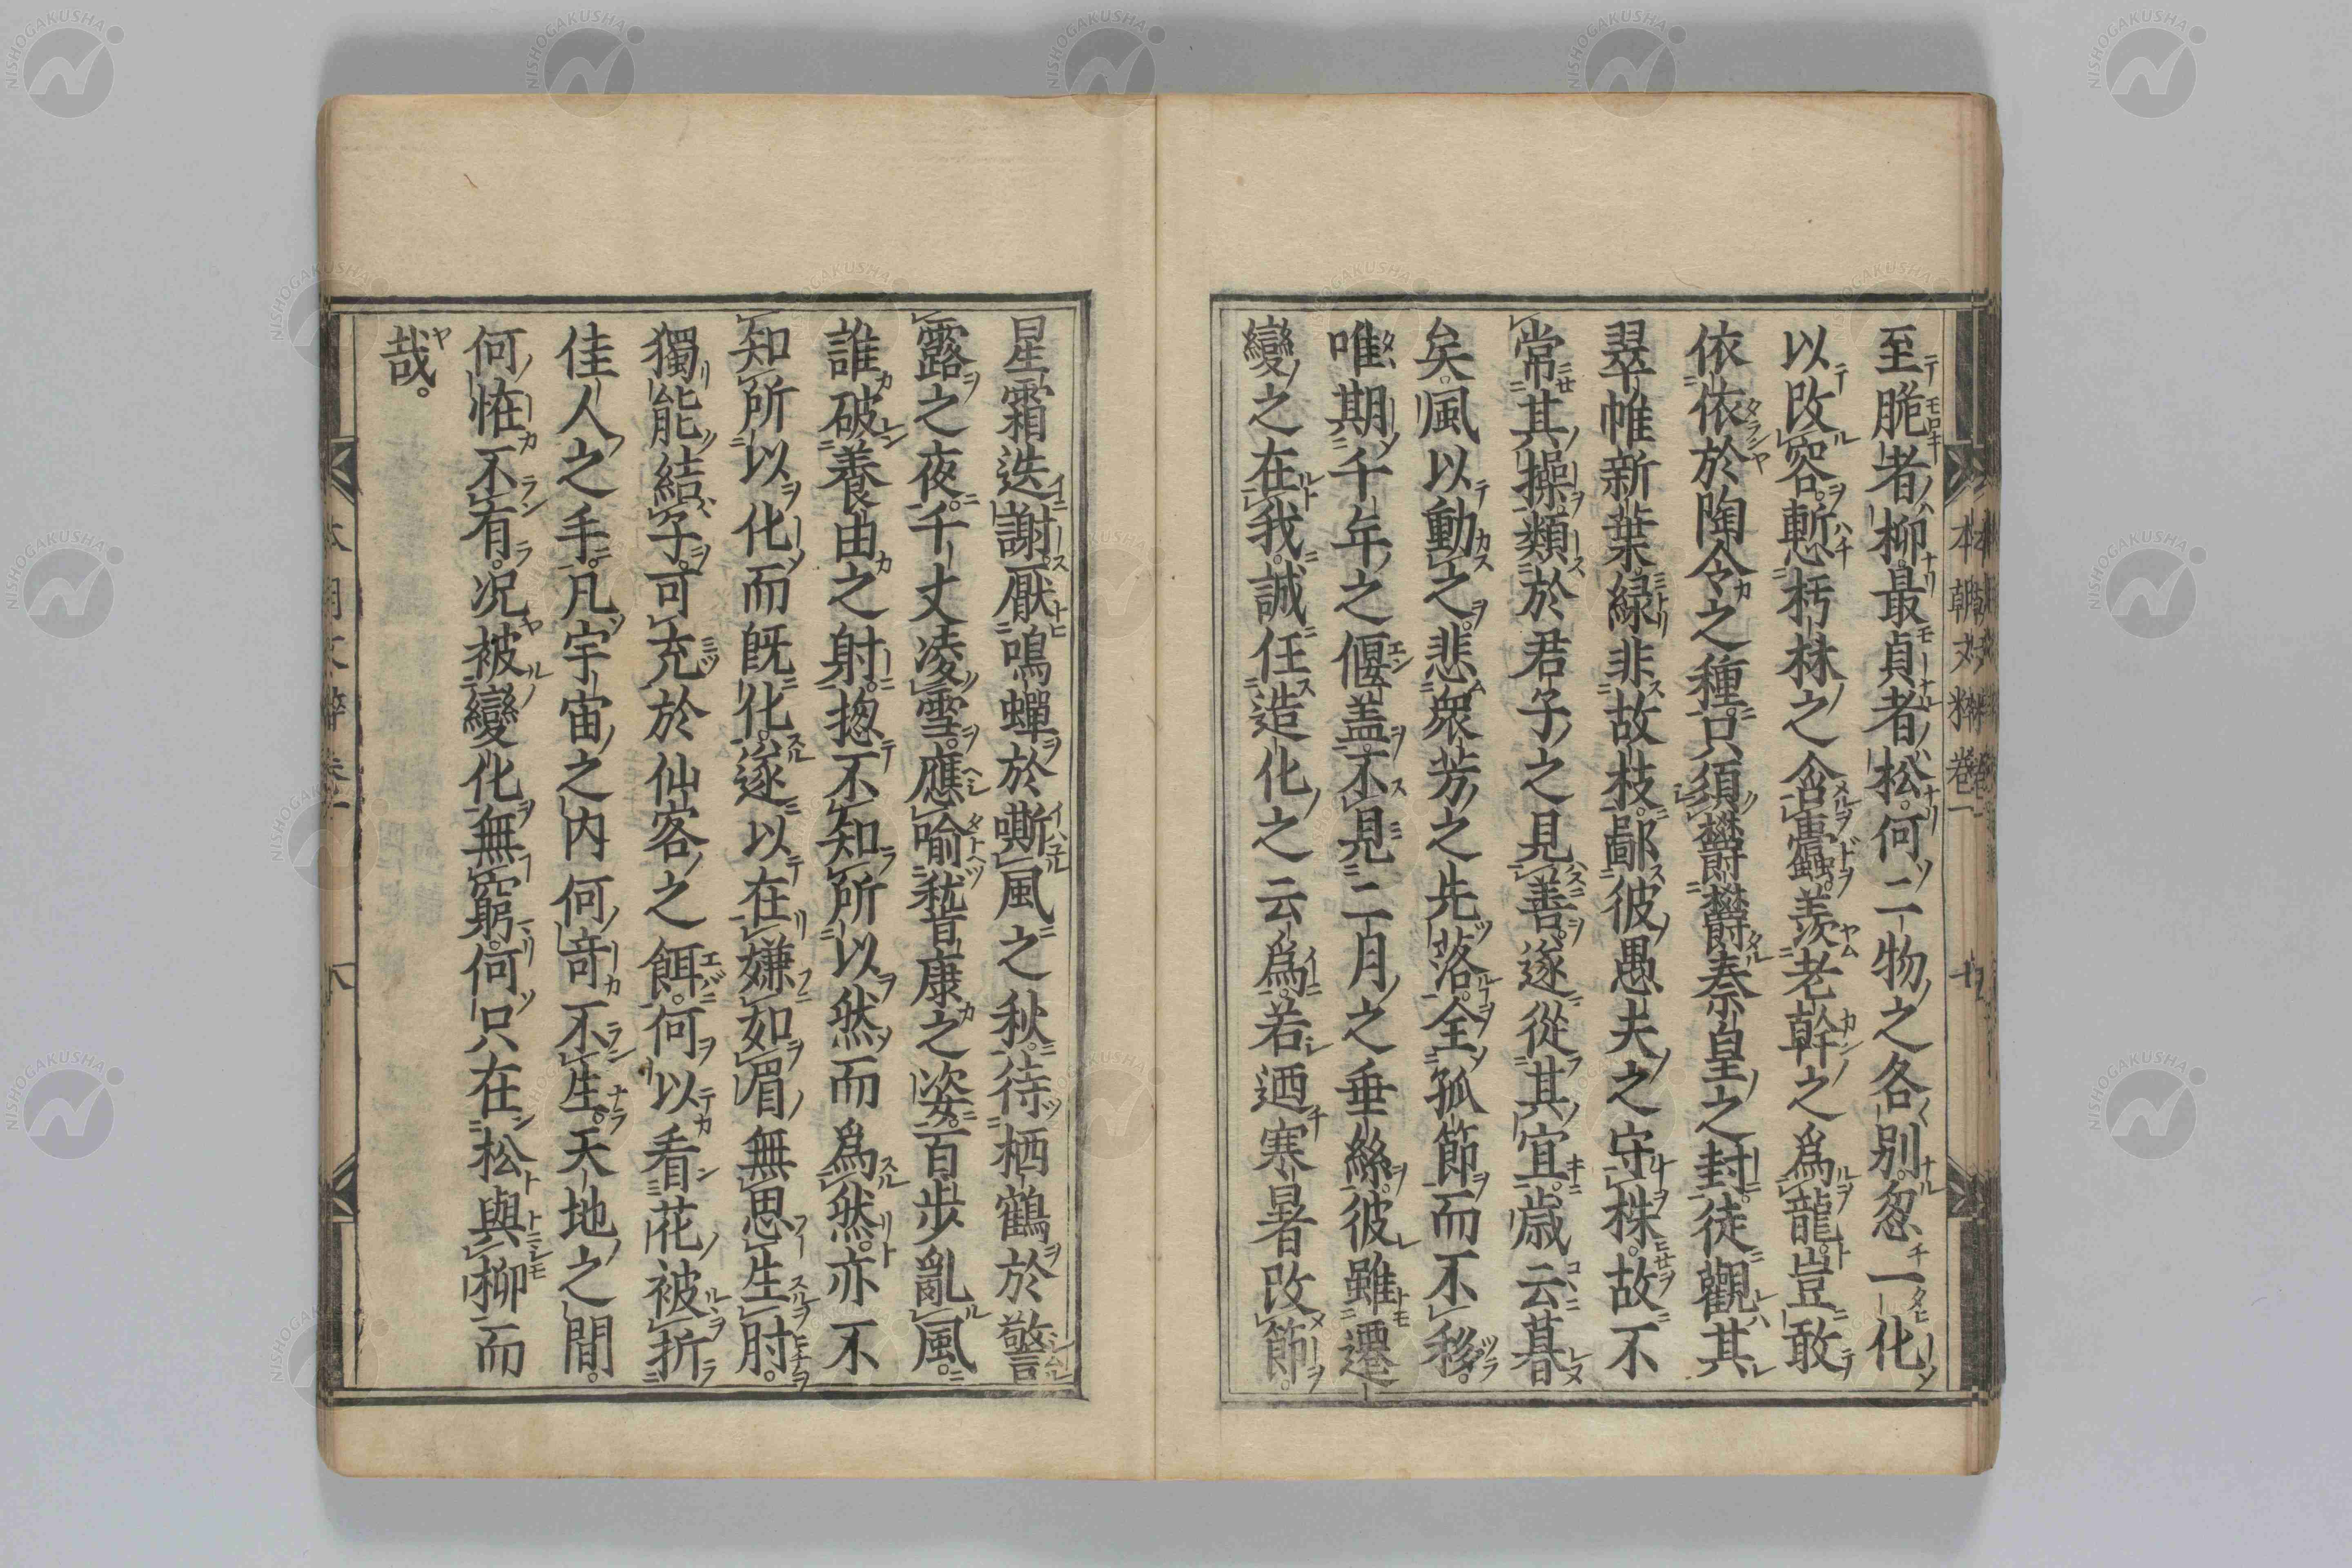 至脆者柳。最貞者松。何二物之各別。忽一化
以改容。慙朽株之含蠹蟲。羨老幹之爲龍。豈敢
依依於陶令之種。只須欝欝秦皇之封。徒觀其
翠帷新葉。綠非故枝。鄙彼愚夫之守株。故不
常其操。類於君子之見善。遂從其宜。歲云暮
矣。風以動之。悲衆芳之先落。全孤節而不移。
唯期千年之偃盖。不見二月之垂絲。彼雖遷
變之在我。誠任造化之云爲。若迺寒暑改節。
星霜迭謝。厭鳴蟬於嘶風之秋。待栖鶴於警
露之夜。千丈凌雪。應喻嵆康之姿。百步亂風。
誰破養由之射。揔不知所以然而爲然。亦不
知所以化而既化。遂以在嫌如眉。無思生肘。
獨能結子。可充於仙客之餌。何以看花。被折
佳人之手。凡宇宙之內何竒不生。天地之間。
何恠不有。况被變化無窮。何只在松與柳而
哉。
本朝文粹卷一